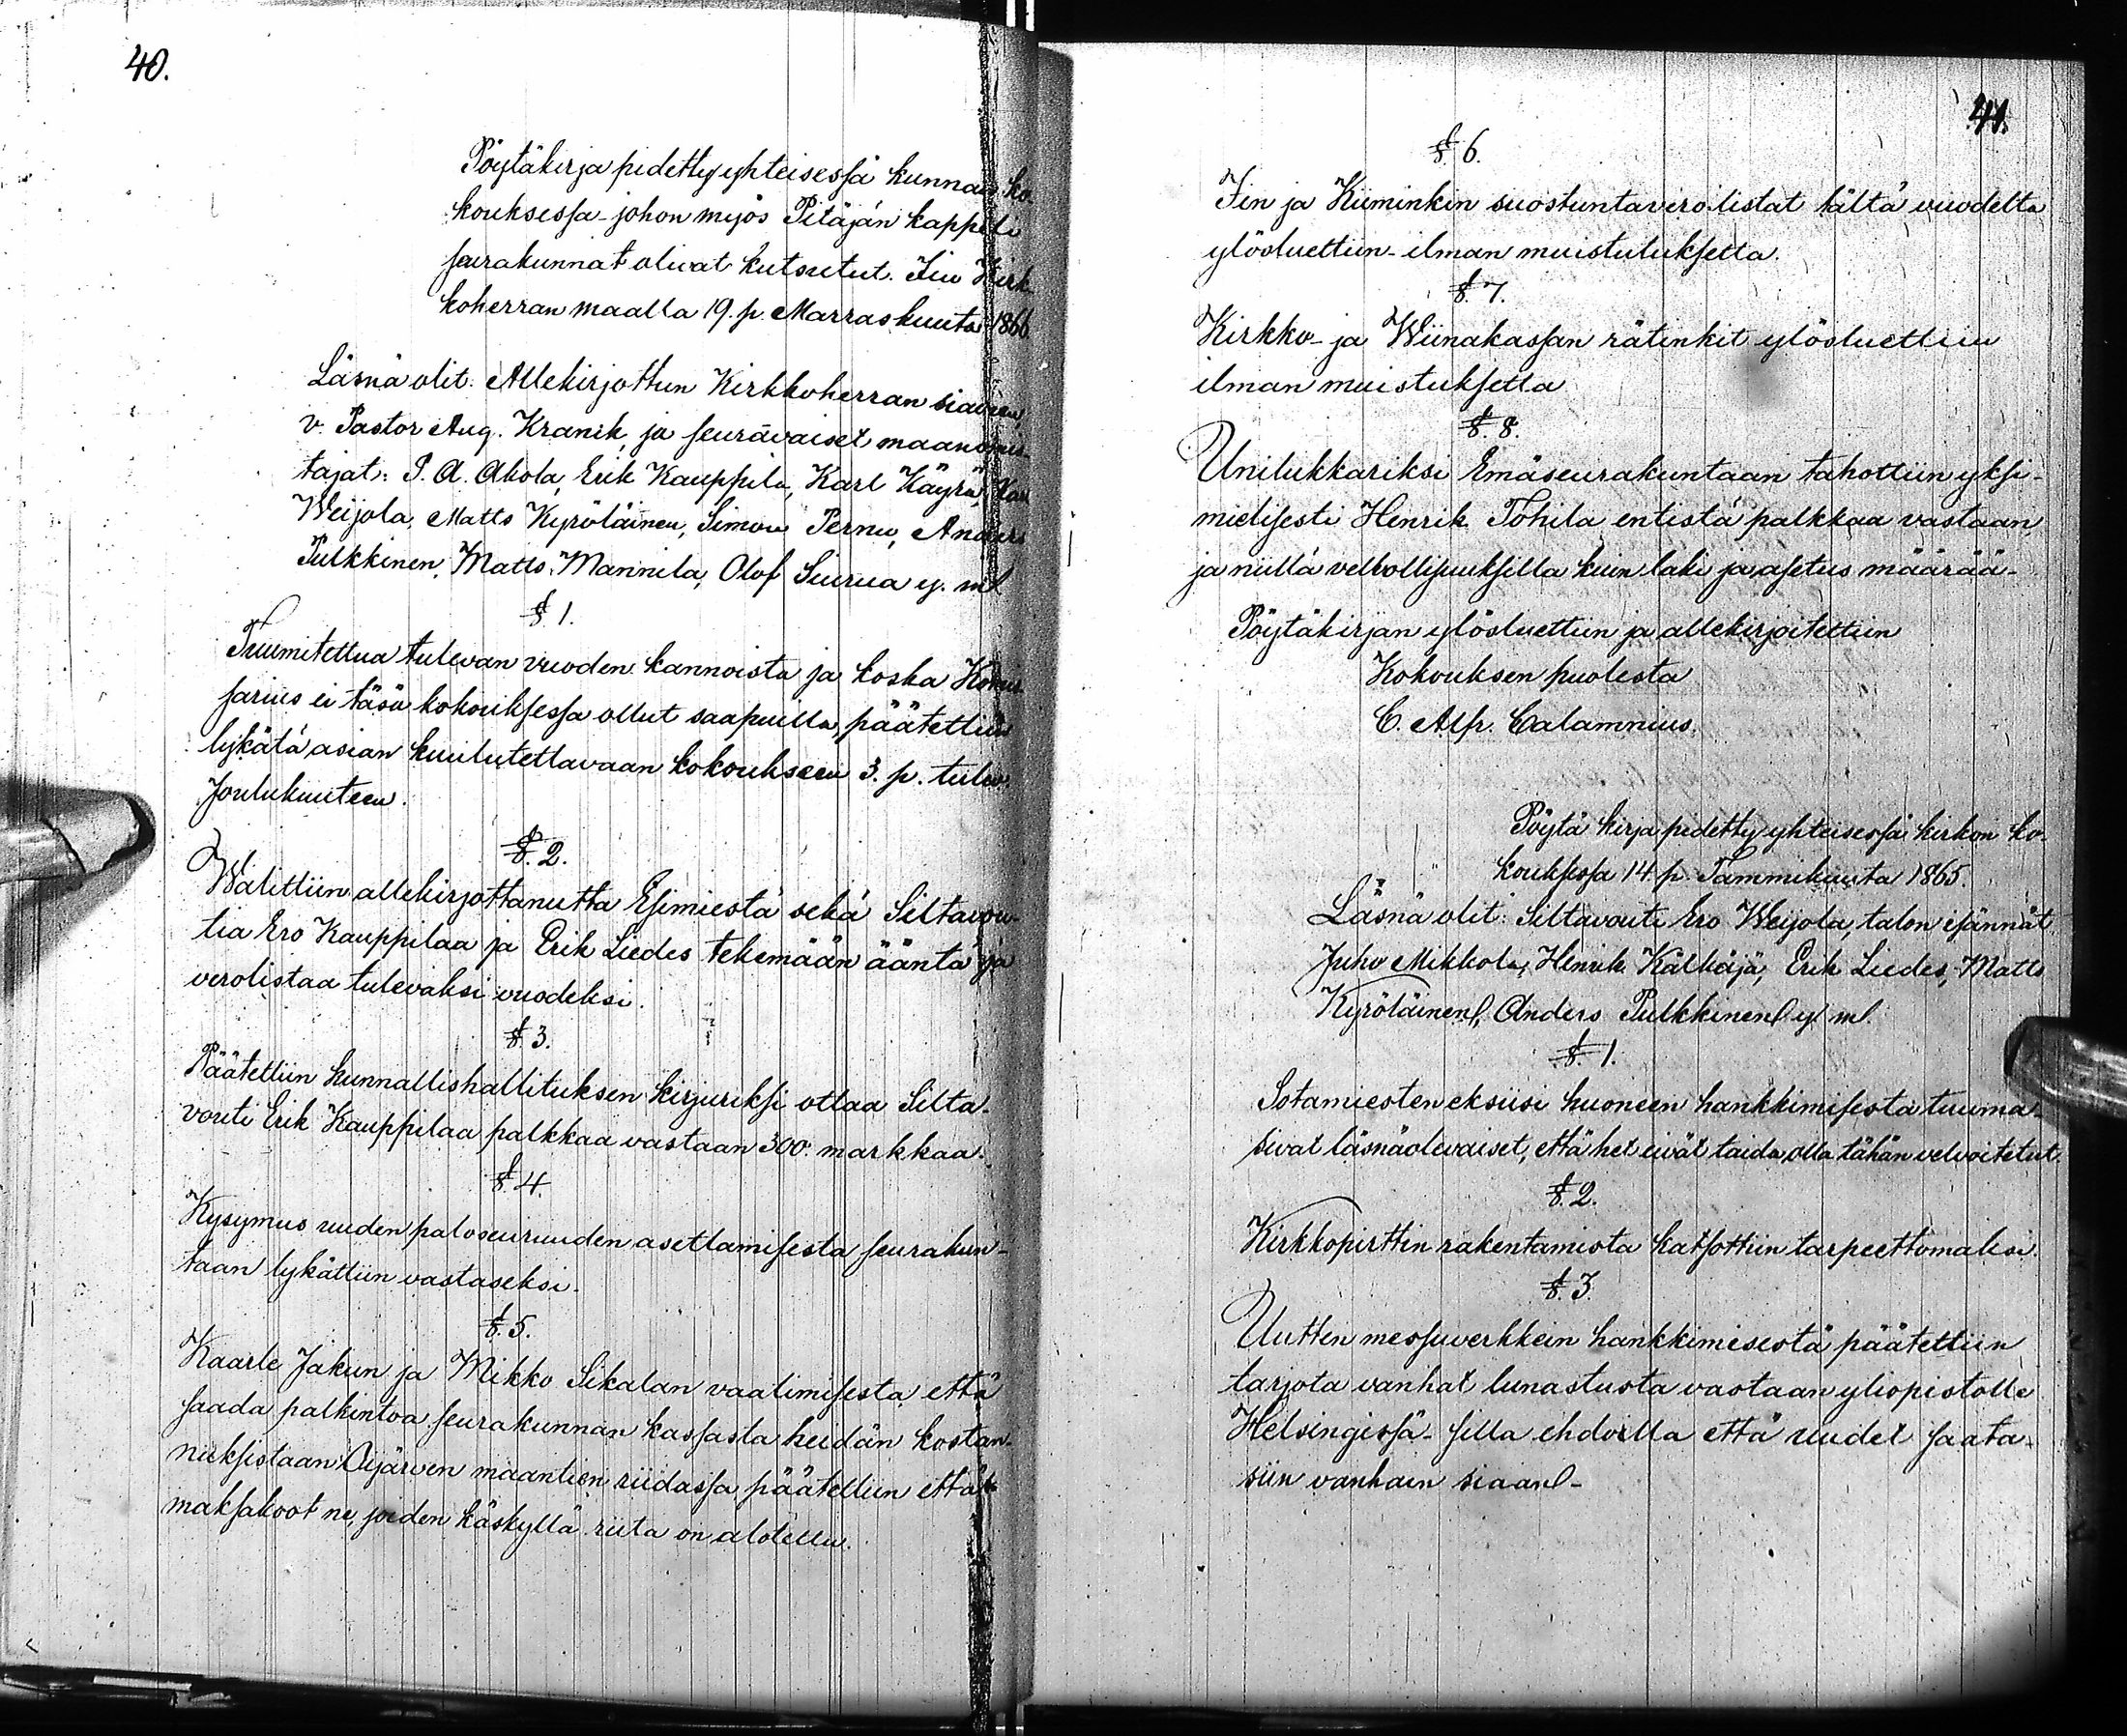 40.
Pöytäkirja pidetty yhteisessä kunnan ko-
kouksessa johon myös Pitäjän kappeli
seurakunnat olivat kutsutut. Iin Kirk
koherran maalla 19. p. Marraskuuta 1866
Läsnä olit: Allekirjottun Kirkkoherran siainen,
v. Pastor Aug. Kranck, ja seuravaiset maanomis-
tajat: P. A. Akola, Erik Kauppila, Karl Käyrä,
Weijola, Matts Kyröläinen, Simon Pernu, Anders
Pulkkinen, Matts Mannila, Olof Siurua y. m.
§ 1.
Tuumitettua tulevan vuoden kannoista ja koska Komis-
sarius ei täsä kokouksessa ollut saapuilla, päätettiin
lykätä asian kuulutettavaan kokoukseen 3. p. tulev.
Joulukuuteen.
§. 2.
Walittiin allekirjottanutta Esimiestä sekä Siltavou-
tia Ero Kauppilaa ja Erik Liedes tekemään ääntä ja
verolistaa tulevaksi vuodeksi.
§. 3.
Päätettiin kunnallishallituksen kirjuriksi ottaa Silta-
vouti Erik Kauppilaa palkkaa vastaan 300 markkaa.
§. 4.
Kysymus uuden paloseuruuden asettamisesta seurakun-
taan lykättiin vastaseksi.
§. 5.
Kaarle Jakun ja Mikko Sikalan vaatimisesta, että
saada palkintoa seurakunnan kassasta heidän kostan-
nuksistaan Oijärven maantien riidassa päätettiin että
maksakoot ne, joiden käskyllä riita on alotettu.
41.
§. 6.
Iin ja Kiiminkin suostuntavero listat tältä vuodelta
ylösluettiin ilman muistutuksetta.
§. 7.
Kirkko- ja Wiinakassan rätinkit ylösluettiin
ilman muistuksetta
§. 8.
Unilukkariksi Emäseurakuntaan tahottiin yksi-
mielisesti Henrik Tohila entistä palkkaa vastaan,
ja niillä velvollisuuksilla kuin laki ja asetus määrää-
Pöytäkirjan ylösluettiin ja allekirjoitettiin
Kokouksen puolesta
C. Alfr. Calamnius.
Pöytä kirja pidetty yhteisessä kirkon ko-
kouksessa 14 p. Tammikuuta 1865.
Läsnä olit: Siltavouti Ero Weijola, talon isännät
Juho Mikkola, Henrik Kälkäjä, Erik Liedes, Matts
Kyröläinen, Anders Pulkkinen y. m.
§. 1.
Sotamiesten eksiisi huoneen hankkimisesta tuuma-
sivat läsnäolevaiset, että het eivät taida olla tähän velvoitetut.
§. 2.
Kirkkopirttin rakentamista katsottiin tarpeettomaksi.
§. 3.
Uutten messuverkkein hankkimisestä päätettiin
tarjota vanhat lunastusta vastaan yliopistolle
Helsingissä sillä ehdolla että uudet saata-
siin vanhain siaan -